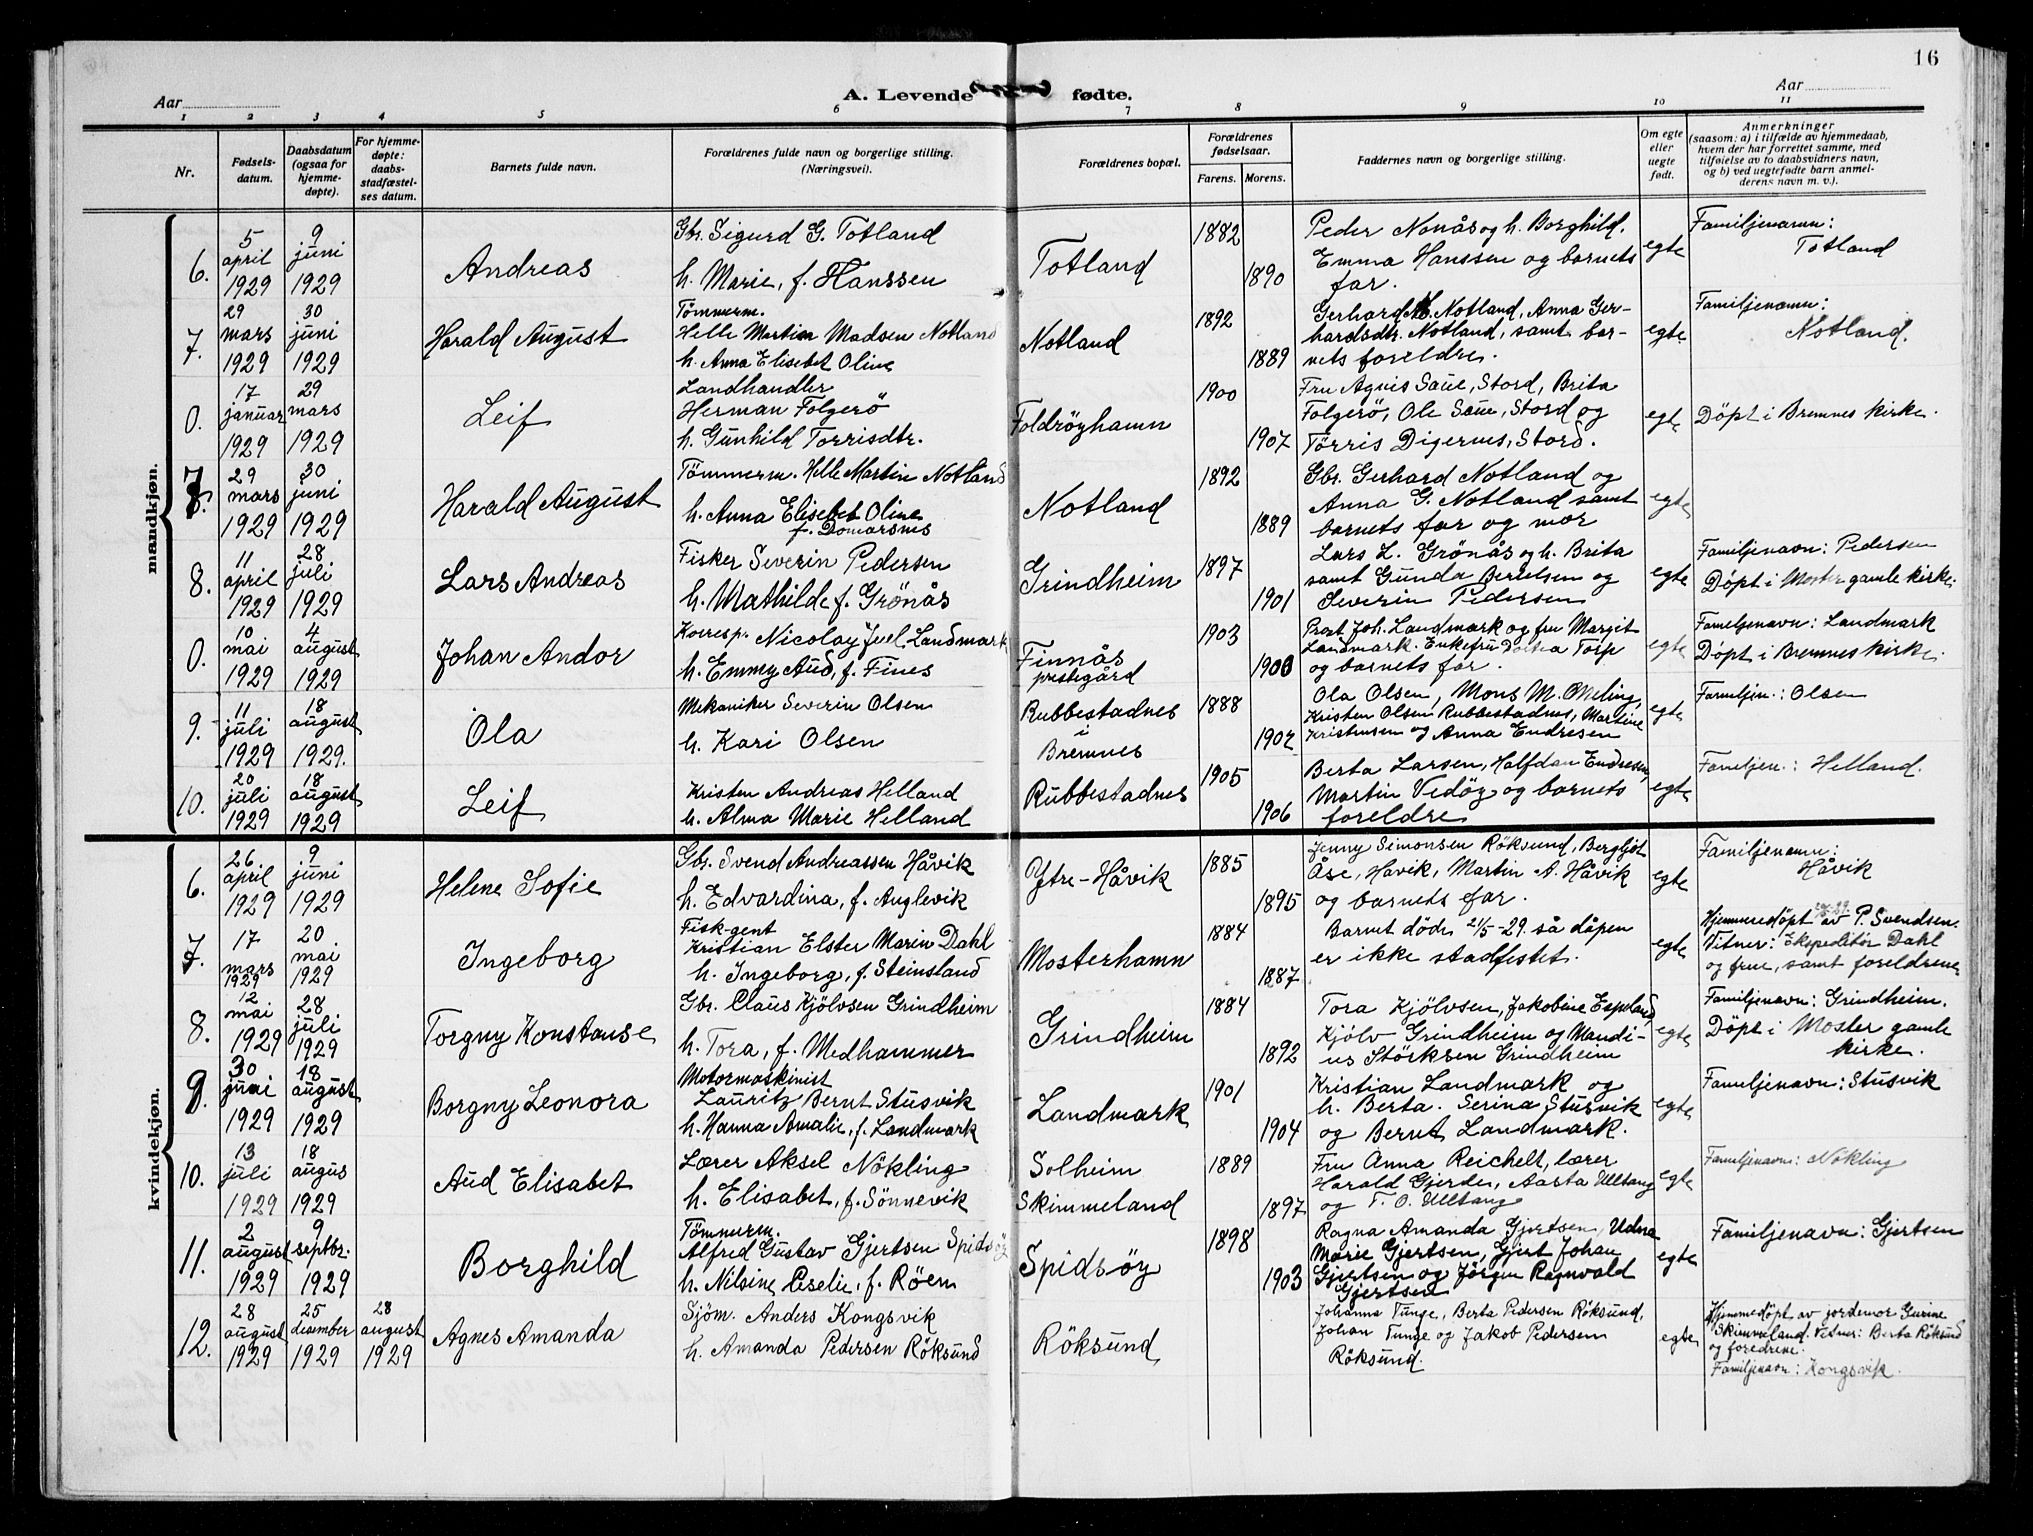 16
Aar
A. Levende fødte.
Aar
1 2 3 4 5 6 7 8 9 10 11
Nr.
Fødsels-
datum.
Daabsdatum
(ogsaa for
hjemme-
døpte).
For hjemme-
døpte:
daabs-
stadfæstel-
ses datum.
Barnets fulde navn.
Forældrenes fulde navn og borgerlige stilling.
(Næringsvei).
Forældrenes bopæl.
Forældrenes
fødselsaar.
Farens. Morens.
Faddernes navn og borgerlige stilling.
Om egte
eller
uegte
født.
Anmerkninger
(saasom: a) i tilfælde av hjemmedaab,
hvem der har forrettet samme, med
tilføielse av to daabsvidners navn,
og b) ved uegtefødte barn anmel-
derens navn m. v.).
mandkjøn.
6.
5
april
1929
9
juni
1929
Andreas
Gbr. Sigurd G. Totland
h. Marie, f. Hanssen
Totland
1882
1890
Peder Nonås og h. Borghild.
Emma Hanssen og barnets
far.
egte
Familjenamn:
Totland
7.
29
mars
1929
30
juni
1929
Harald August
Tømmerm.
Helle Martin Madsen Notland
h. Anna Elisebet Oline
Notland
1892
1889
Gerhard Notland, Anna Ger-
hardsdtr. Notland, samt bar-
nets foreldre.
egte
Familjenamn:
Notland.
0.
17
januar
1929
29
mars
1929
Leif
Landhandler
Herman Folgerö
h. Gunhild Torrisdtr.
Foldröyhamn
1900
1907
Fru Agnis Saue, Stord, Brita
Folgerö, Ole Saue, Stord og
Tørris Digernes, Stord.
egte
Döpt i Bremnes kirke.
7.
29
mars
1929
30
juni
1929
Harald August
Tömmerm. Helle Martin Notland
h. Anna Elisebet Oline
f. Domarsnes
Notland
1892
1889
Gbr. Gerhard Notland og
Anna G. Notland samt
barnets far og mor
egte
8.
11
april
1929
28
juli
1929
Lars Andreas
Fisker Severin Pedersen
h. Mathilde f. Grönås
Grindheim
1897
1901
Lars L. Grönås og h. Brita
samt Gunda Bertelsen og
Severin Pedersen
egte
Familjenavn: Pedersen
Döpt i Moster gamle kirke.
0.
10
mai
1929
4
august
1929
Johan Andor
Korresp. Nicolay Juel Landmark
h. Emmy Aud, f. Fines
Finnås
prestegård
1903
1900
Prost Joh. Landmark og fru Margit
Landmark. Enkefru Torp
og barnets far.
egte
Familjenavn: Landmark
Döpt i Bremnes kirke.
9.
11
juli
1929
18
august
1929.
Ola
Mekaniker Severin Olsen
h. Kari Olsen
Rubbestadnes
i
Bremnes
1888
1902
Ola Olsen, Mons M. Meling,
Kristen Olsen Rubbestadnes, Martine
Kristensen og Anna Endresen
egte
Familjen.: Olsen
10.
20
juli
1929
18
august
1929
Leif
Kristen Andreas Helland
h. Alma Marie Helland
Rubbestadnes
1905
1906
Berta Larsen, Halfdan Endresen,
Martin Vedöy og barnets
foreldre
egte
Familjen.: Helland.
kvindekjøn.
6.
26
april
1929
9
juni
1929
Helene Sofie
Gbr. Svend Andreassen Håvik
h. Edvardina, f. Auglevik
Ytre-Håvik
1885
1895
Jenny Simonsen Röksund, Bergljot
Åse, Håvik, Martin A. Håvik
og barnets far.
egte
Familjenamn:
Håvik
7.
17
mars
1929
20
mai
1929
Ingeborg
Fisk-gent
Kristian Elster Marin Dahl
h. Ingeborg, f. Steinsland
Mosterhamn
1884
1887
Barnet döde 21/5-29. så dåpen
er ikke stadfestet.
egte
Hjemmedöpt av P. Svendsen.
Vitner: Ekspeditör Dahl
og frue, samt foreldrene
8.
12
mai
1929
28
juli
1929
Torgny Konstanse
Gbr. Claus Kjölvsen Grindheim
h. Tora, f. Medhammer
Grindheim
1884
1892
Tora Kjölvsen, Jakobine Espeland,
Kjölv Grindheim og Mandi-
us Störksen Grindheim
egte
Familjenavn: Grindheim.
Döpt i Moster gamle
kirke.
9.
30
juni
1929
18
august
1929
Borgny Leonora
Motormaskinist
Lauritz Bernt Stusvik
h. Hanna Amalie, f. Landmark
Landmark
1901
1904
Kristian Landmark og
h. Berta. Serina Stusvik
og Bernt Landmark.
egte
Familjenavn: Stusvik
10.
13
juli
1929
18
augus
1929
Aud Elisabet
Lærer Aksel Nökling
h. Elisabet, f. Sönnevik
Solheim
Skimmeland
1889
1897
Fru Anna Reichelt, lærer
Harald Gjerde, Aasta Ulltang
og T. O. Ulltang
egte
Familjenavn: Nökling
11.
2
august
1929
9
septbr.
1929
Borghild
Tömmerm.
Alfred Gustav Gjertsen Spidsöy
h. Nilsine Geselie, f. Röen
Spidsöy
1898
1903
Ragna Amanda Gjertsen, Udna
Marie Gjertsen, Gjert Johan
Gjertsen og Jörgen Ragnvald
Gjertsen
egte
Familjenavn: Gjertsen
12.
28
august
1929
25
desember
1929
28
august
1929
Agnes Amanda
Sjöm. Anders Kongsvik
h. Amanda Pedersen Röksund
Röksund
Johanna Tunge, Berta Pedersen Röksund,
Johan Tunge og Jakob Pedersen
Röksund.
egte
Hjemmedöpt av jordemor Gurine
Skimmeland. Vitner: Berta Röksund
og foredrene.
Familjenavn: Kongsvik.